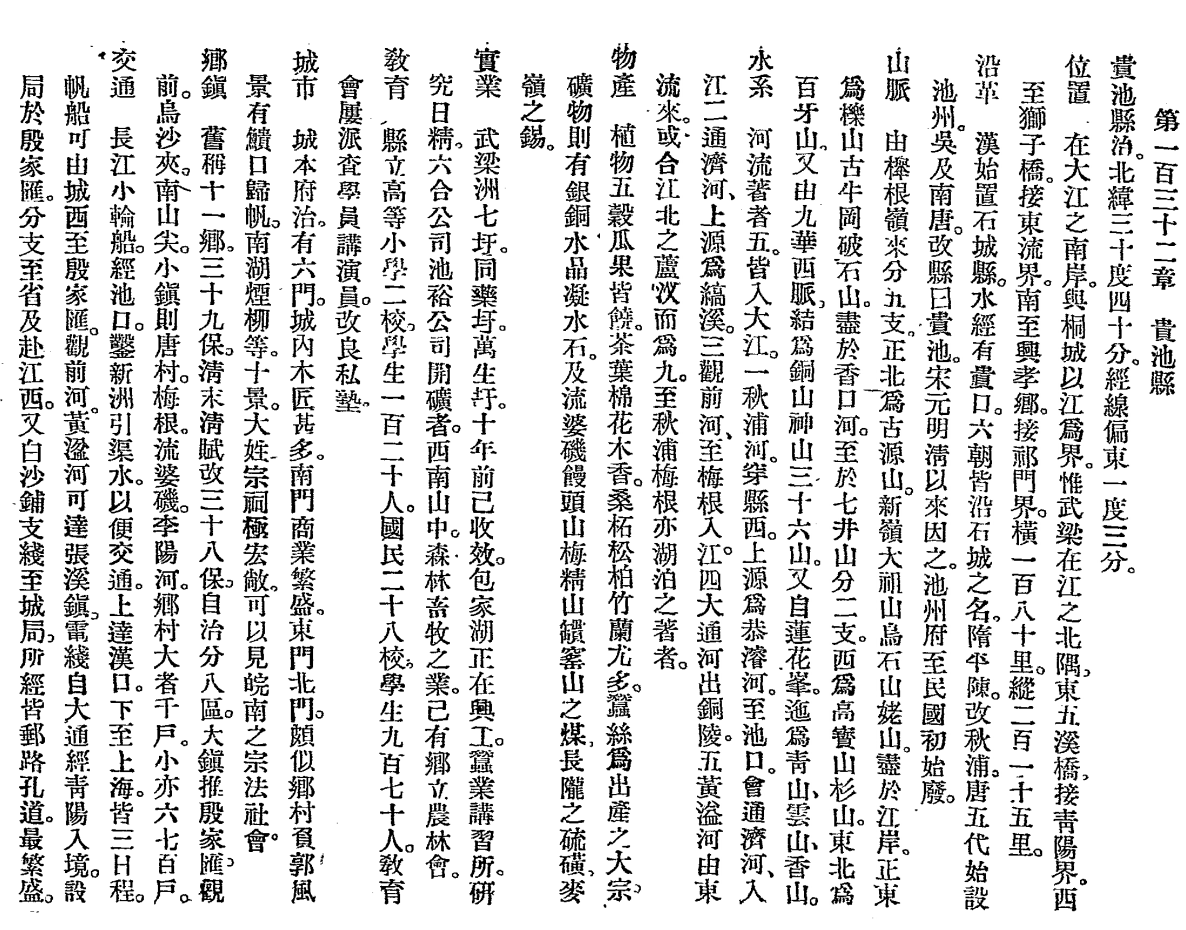 第一百三十二章　貴池縣
貴池縣治。北緯三十度四十分。經線偏東一度三分。
位置　在大江之南岸。與桐城以江爲界。惟武梁在江之北隅、東五溪橋、接靑陽界。西
至獅子橋。接東流界。南至興孝鄉。接祁門界。橫一百八十里。縱二百一十五里。
沿革　漢始置石城縣。水經有貴口。六朝皆沿石城之名。隋平陳。改秋浦。唐五代始設
池州。吳及南唐。改縣曰貴池。宋元明淸以來因之。池州府至民國初始廢。
山脈　由櫸根嶺來分五支。正北爲古源山。新嶺大祖山烏石山姥山。盡於江岸。正東
爲櫟山古牛岡破石山。盡於香口河。至於七井山分二支。西爲高寳山杉山。東北爲
百牙山。又由九華西脈、結爲銅山神山三十六山。又自蓮花峯。迤爲靑山、雲山、香山。
水系　河流著者五。皆入大江。一秋浦河。穿縣西。上源爲恭濬河。至池口。會通濟河、入
江二通濟河、上源爲縞溪。三觀前河、至梅根入江。四大通河出銅陵。五黃溢河由東
流來。或合江北之蘆汊而爲九。至秋浦梅根亦湖泊之著者。
物產　植物五穀瓜果皆饒。茶葉棉花木香。桑柘松柏竹蘭尤多。蠶絲爲出產之大宗、
礦物則有銀銅水品凝水石。及流婆磯饅頭山梅精山饙窰山之煤、長隴之硫磺、麥
嶺之錫。
實業　武梁洲七圩。同藥圩。萬生圩。十年前已收效。包家湖正在興工。蠶業講習所。硏
究日精。六合公司池裕公司開礦者。西南山中。森林畜牧之業。已有鄉立農林會。
敎育　縣立高等小學二校。學生一百二十人。國民二十八校。學生九百七十人。敎育
會屢派査學員講演員。改良私塾。
城市　城本府治。有六門。城內木匠甚多。南門商業繁盛。東門北門。頗似鄉村負郭風
景有饙口歸帆。南湖煙柳等。十景。大姓宗祠極宏敞。可以見皖南之宗法社會。
鄉鎭　舊稱十一鄉。三十九保。淸末淸賦改三十八保。自治分八區。大鎭推殷家匯、觀
前。烏沙夾。南山尖。小鎭則唐村。梅根。流婆磯。李陽河。鄉村大者千戶。小亦六七百戶。
交通　長江小輪船。經池口。鑿新洲引渠水。以便交通。上達漢口。下至上海。皆三日程。
帆船可由城西至殷家匯。觀前河。黃溢河可達張溪鎭。電綫自大通經靑陽入境。設
局於殷家匯。分支至省及赴江西。又白沙鋪支綫至城局。所經皆郵路孔道。最繁盛。